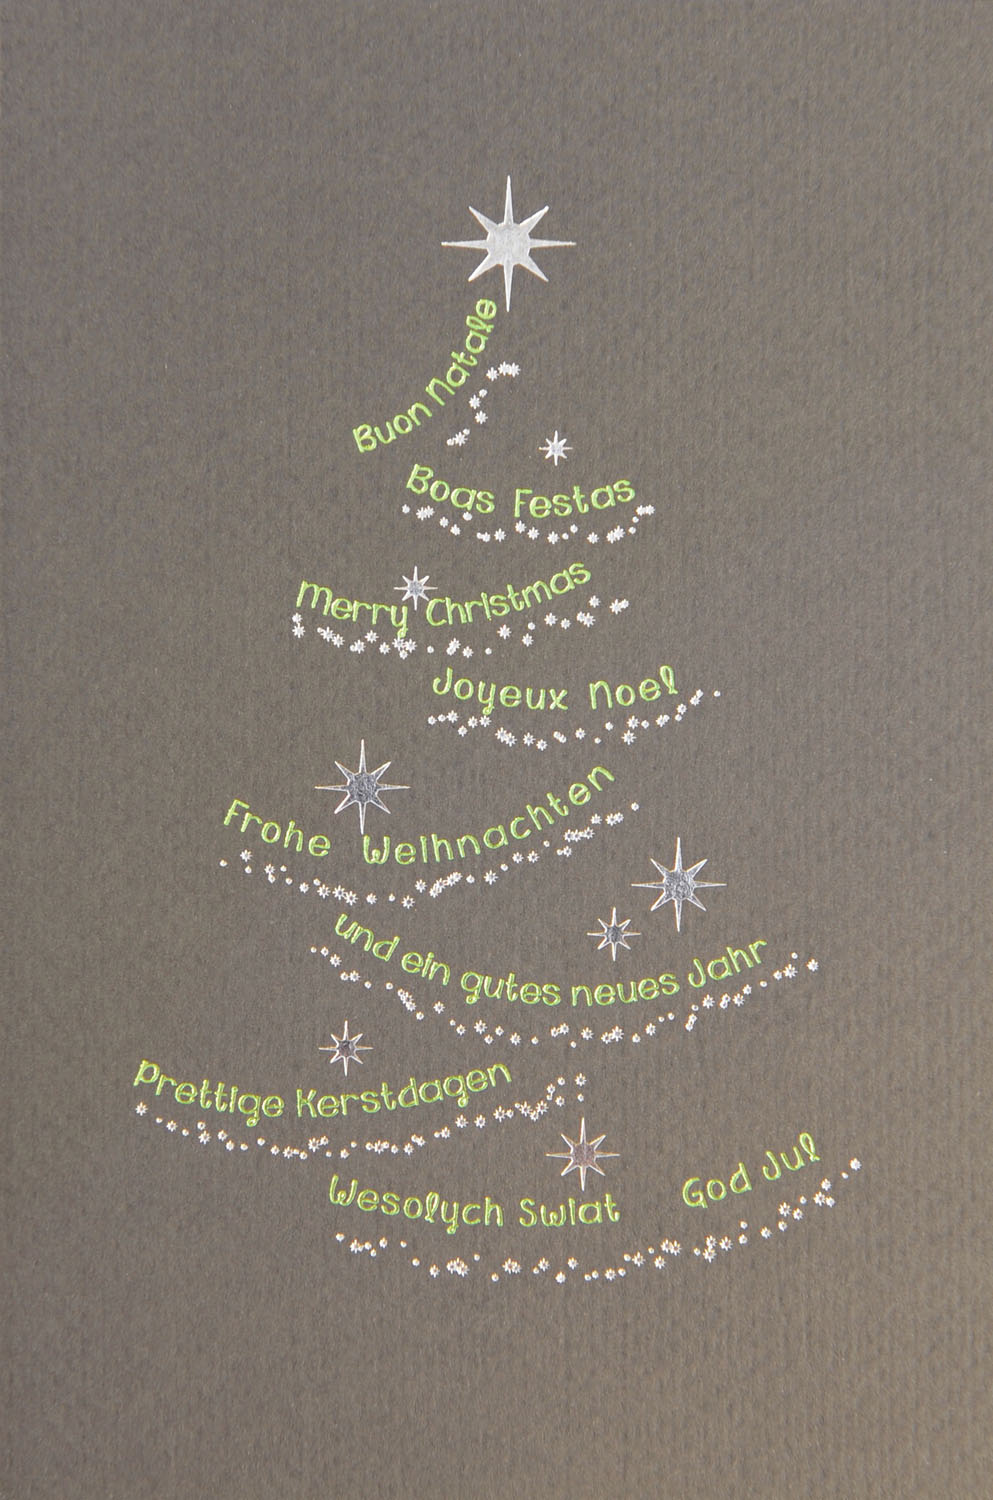 Buon Natale
Boas Festas
Merry Christmas
Joyeux Noel
Frohe Weihnachten
und ein gutes neues Jahr
Prettige Kerstdagen
Wesolych Swiat God Jul